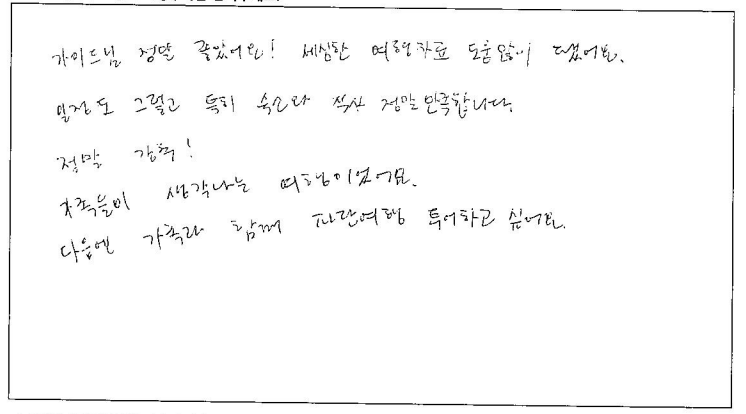 가이드님 정말 좋았어요! 세심한 여행자료 도움 많이 됐어요.
일정도 그렇고 특히 숙소와 식사 정말 만족합니다.
정말 감동!
가족들이 생각나는 여행이었어요.
다음엔 가족과 함께 파란여행 투어하고 싶어요.